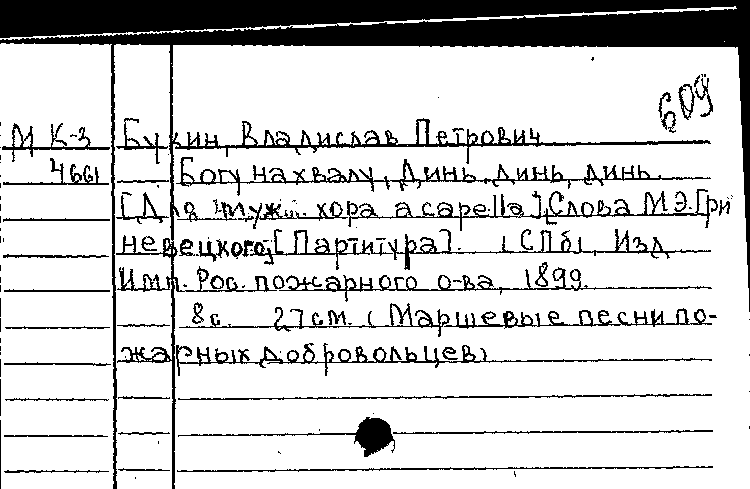 609
М К-3 Букин, Владислав Петрович
4661 Богу на хвалу, Динь, динь, динь.
[Для муж. хора a capella]. Слова М.Э. [Гри
невецкого]. [Партитура]. (СПб), Изд
Имп. Рос. пожарного о-ва, 1899.
8с. 27см. (Маршевые песни по-
жарных добровольцев)